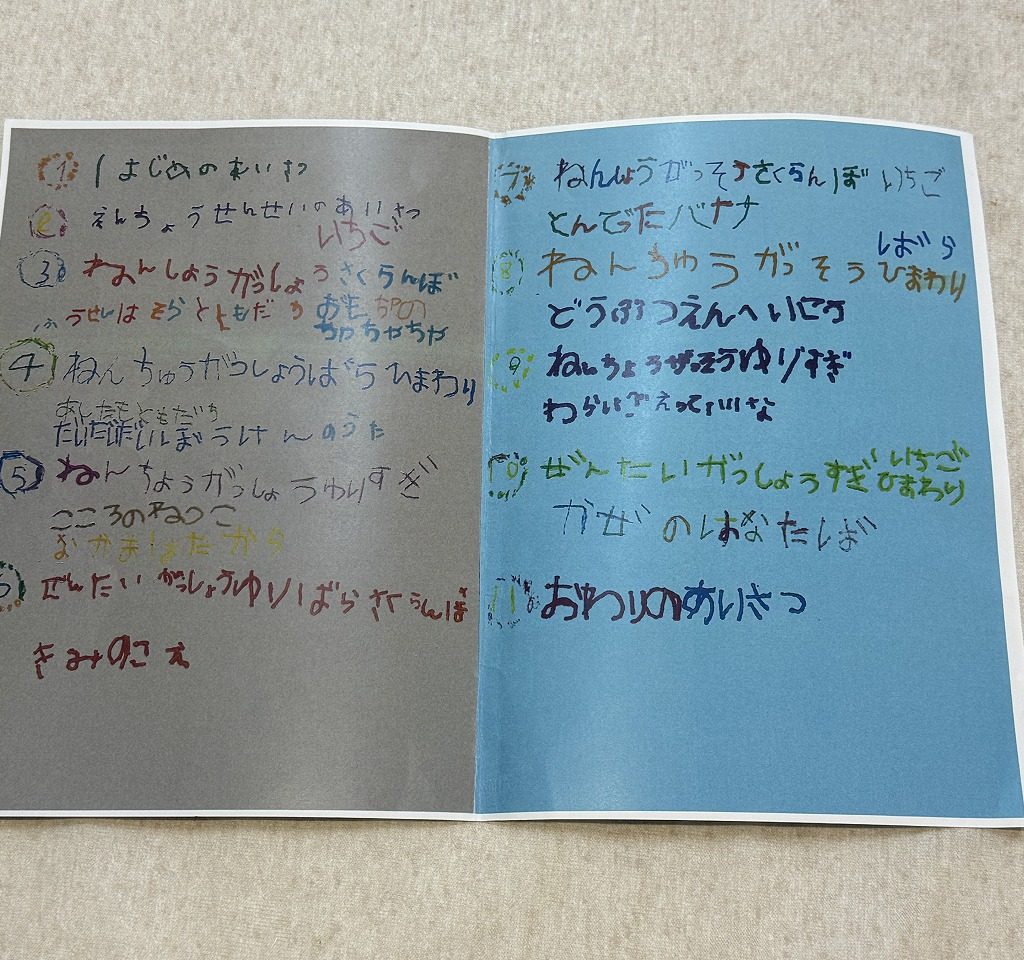 ① はじめのあいさつ
② えんちょうせんせいのあいさつ
いちご
③ ねんしょうがっしょう さくらんぼ
ふうせいは そらとともだち おもちゃの
ちゃちゃちゃ
④ ねんちゅうがっしょうばらひまわり
あしたもともだち
だいだいだいぼうけんのうた
⑤ ねんちょうがっしょうゆりすぎ
こころのねっこ
なかまだから
⑥ ぜんたいがっしょうゆりばらさくらんぼ
きみのこえ
⑦ ねんしょうがっそうさくらんぼ いちご
とんでったバナナ
ばら
⑧ ねんちゅうがっそうひまわり
どうぶつえんへいこう
⑨ ねんちょうがっそうゆりすぎ
わらいごえっていいな
⑩ ぜんたいがっしょうすぎいちご
ひまわり
かぜのはなたば
⑪ おわりのあいさつ